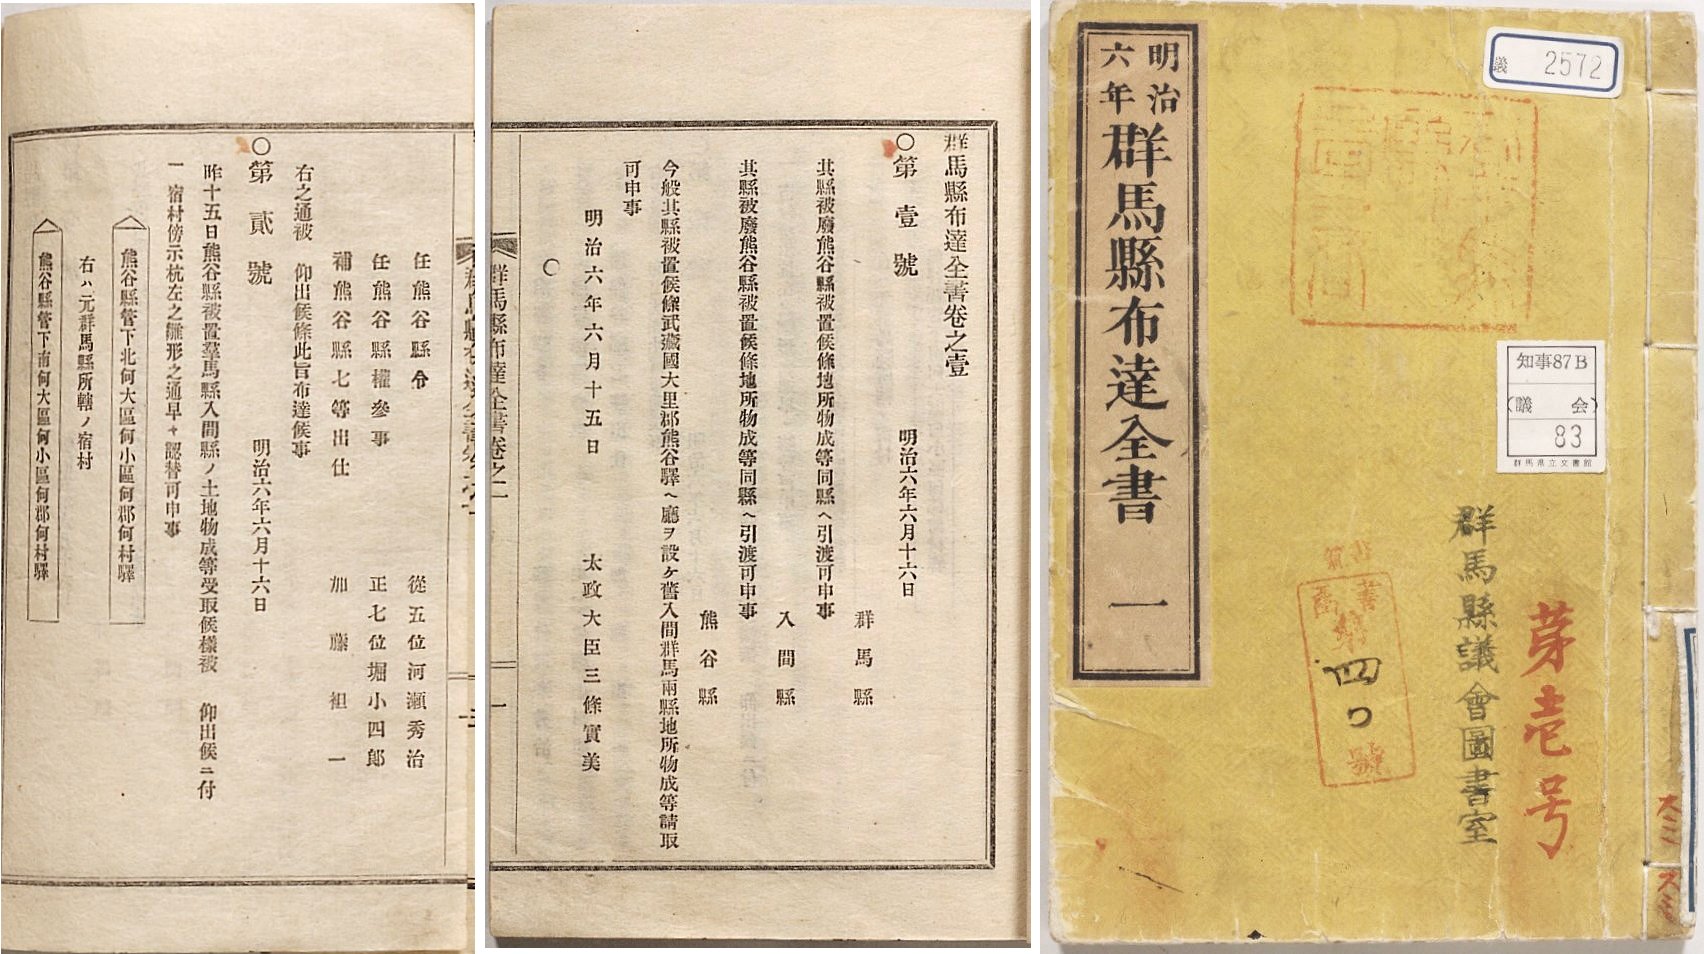 明治
六年
群馬縣布達全書 一
議 2572
知事87B
(議 会)
83
群馬県立文書館
群馬縣議會圖書室
第壱号
四
號
群馬縣布達全書卷之壹
〇第壹號 明治六年六月十六日
群馬縣
其縣被廢熊谷縣被置候條地所物成等同縣ヘ引渡可申事
入間縣
其縣被廢熊谷縣被置候條地所物成等同縣ヘ引渡可申事
熊谷縣
今般其縣被置候條武藏國大里郡熊谷驛ヘ廳ヲ設ケ舊入間群馬兩縣地所物成等請取
可申事
明治六年六月十五日 太政大臣三條實美
〇
群馬縣布達全書卷之一 一
任熊谷縣令 從五位河瀬秀治
任熊谷縣權參事 正七位堀小四郎
補熊谷縣七等出仕 加藤祖一
右之通被 仰出候條此旨布達候事
〇第貳號 明治六年六月十六日
昨十五日熊谷縣被置羣馬縣入間縣ノ土地物成等受取候樣被 仰出候ニ付
一 宿村傍示杭左之雛形之通早々認替可申事
熊谷縣管下北何大區何小區何郡何村驛
右ハ元群馬縣所轄ノ宿村
熊谷縣管下南何大區何小區何郡何村驛